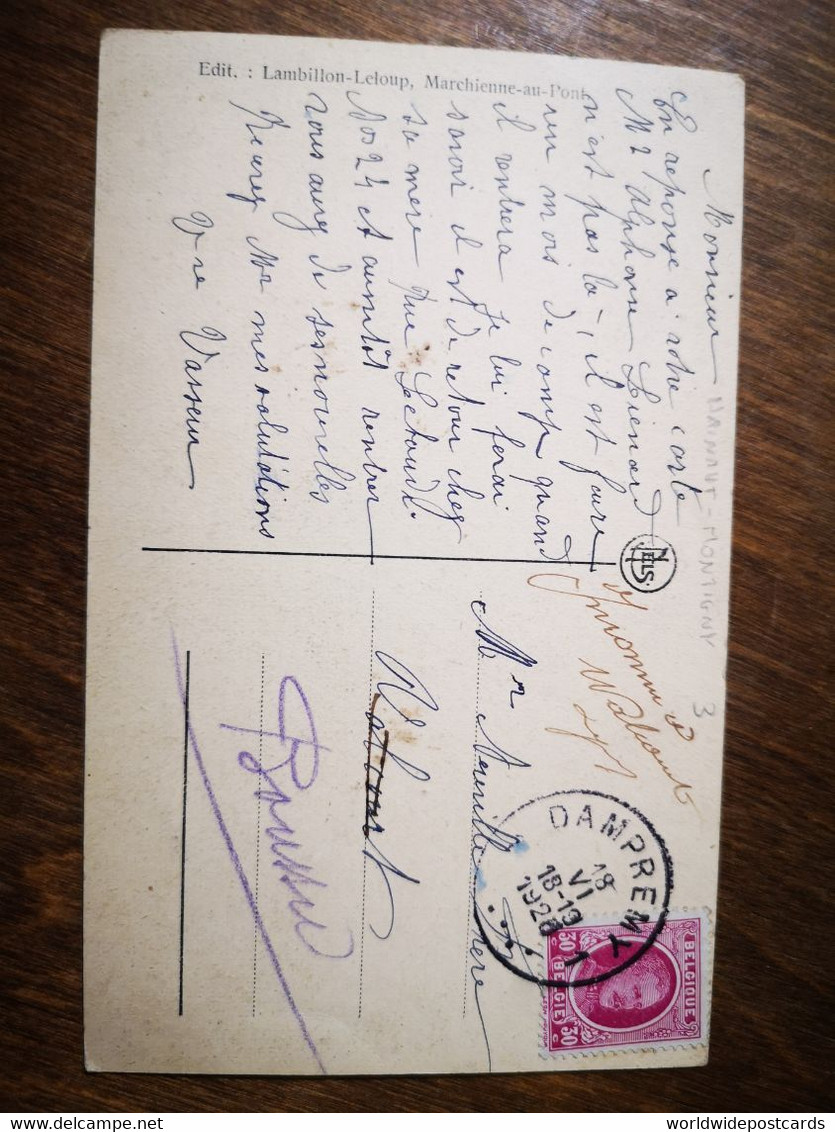 Edit. : Lambillon-Leloup, Marchienne-au-Pont
Monsieur
En reponse a votre carte
Mr Alphonse Lienard
n'est pas la, il est faire
un mois de camp quand
il rentrera je lui ferai
savoir il est de retour chez
sa mere Rue
No 24 et aussitôt rentrer
vous aurez de ses nouvelles
Recevez Mr mes salutations
Vve Vasseur
HAINAUT - MONTIGNY 3
NELS
Inconnu à
Wabault
Mr
DAMPREMY 1
18
VI
18-19
1928
30 c BELGIQUE
BELGIË 30 c
delcampe.net
worldwidepostcards